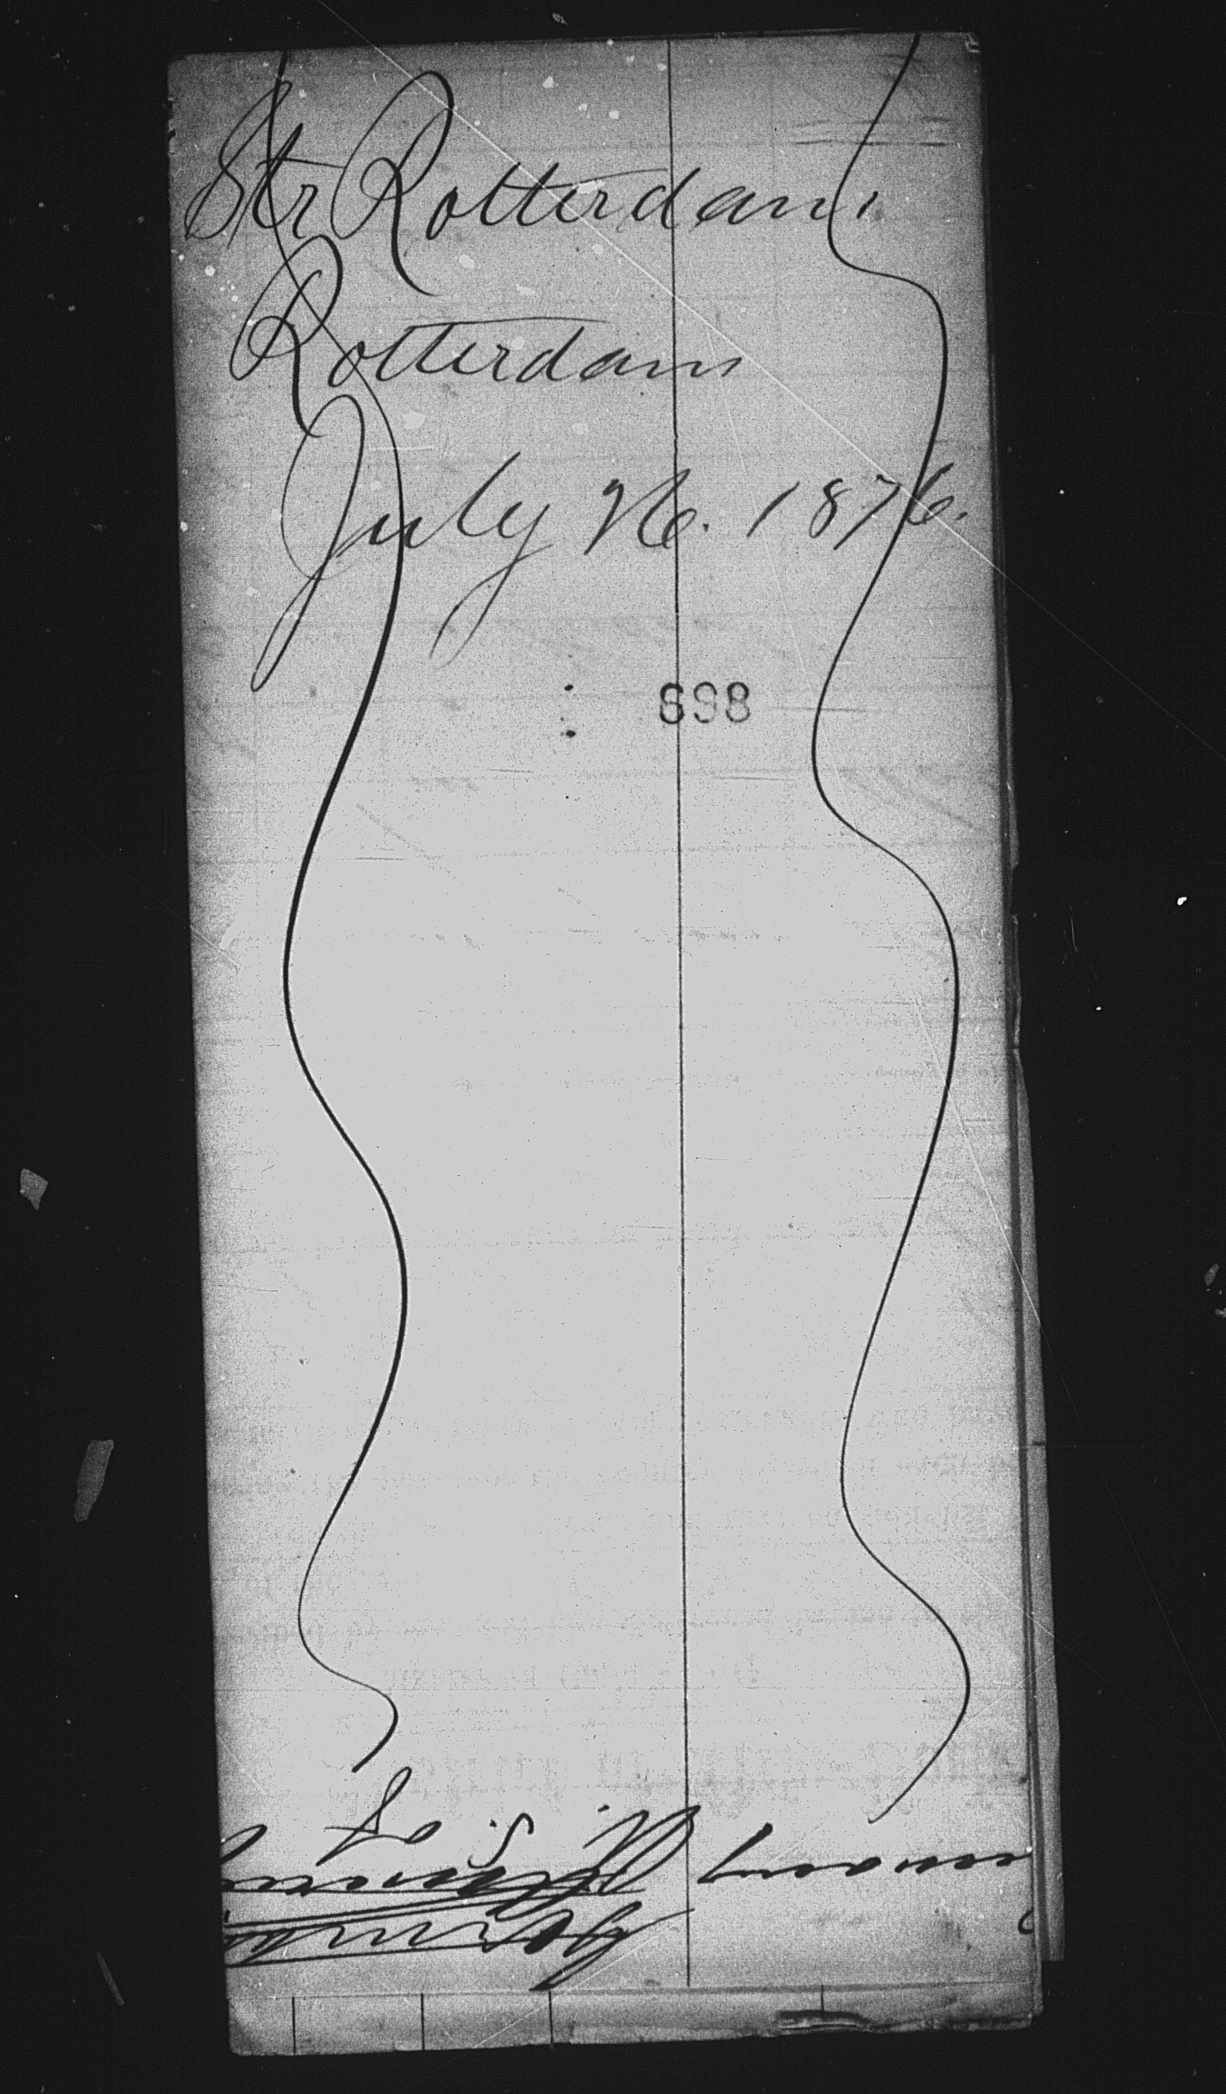 Str Rotterdam
Rotterdam
July 26. 1876.
698
U. S. of